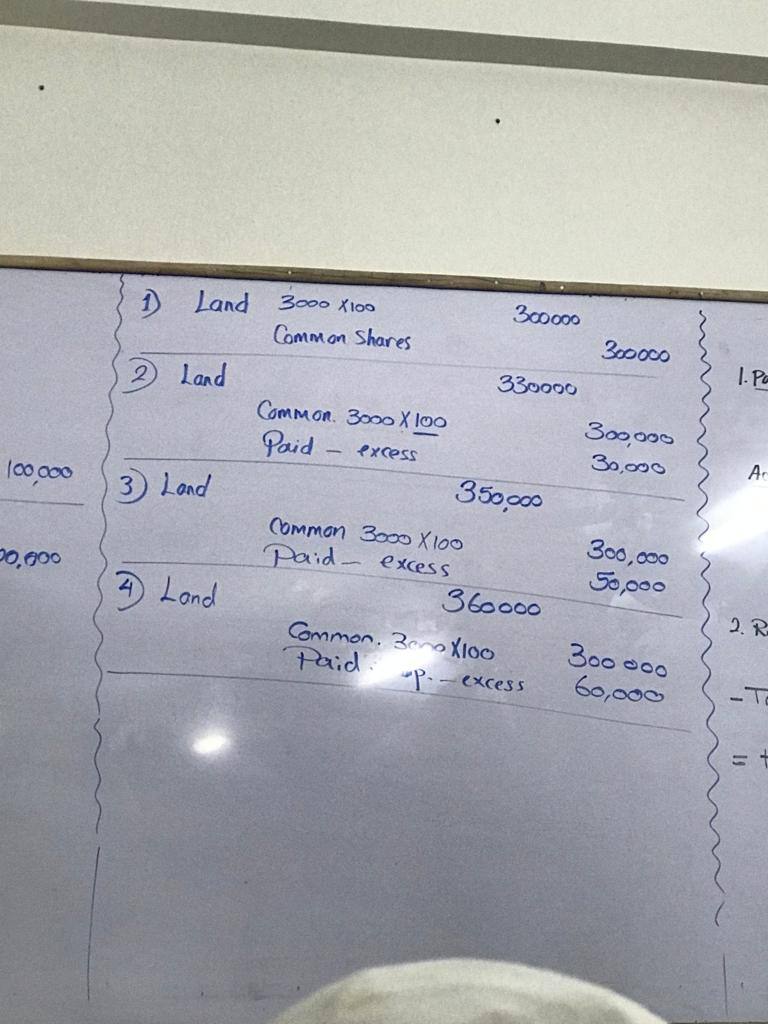 100,000
00,000
1) Land 3000 X100 300000
Common Shares 300000
2) Land 330000
Common. 3000 X 100 300,000
Paid - excess 30,000
3) Land 350,000
Common 3000 X100 300,000
Paid - excess 50,000
4) Land 360000
Common. 3000 X100 300 000
Paid. P. - excess 60,000
1. Pa
Ac
2. R
- To
= t